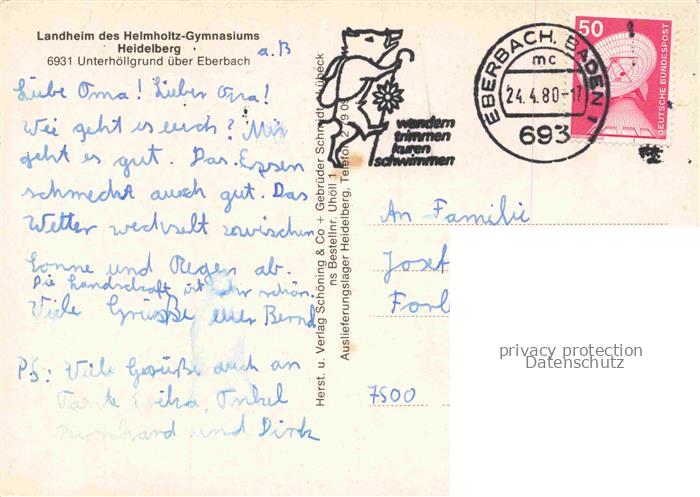 Landheim des Helmholtz-Gymnasiums
Heidelberg
6931 Unterhöllgrund über Eberbach
a.B
Liebe Oma! Lieber Opa!
Wie geht es euch? Mir
geht es gut. Das Essen
schmeckt auch gut. Das
Wetter wechselt zwischen
Sonne und Regen ab.
Die Landschaft ist sehr schön.
Viele Grüße euer Bernd
PS: Viele Grüße auch an
Tante Erika, Onkel
Bernhard und Dirk
Herst. u. Verlag Schöning & Co + Gebrüder Schmidt, Lübeck
ns Bestellnr. Uhöll 1
Auslieferungslager Heidelberg, Telefon 2 19 09
wandern
trimmen
kuren
schwimmen
EBERBACH, BADEN 1
mc
24.4.80-17
693
50
DEUTSCHE BUNDESPOST
An Familie
Josef
Forb
7500
privacy protection
Datenschutz